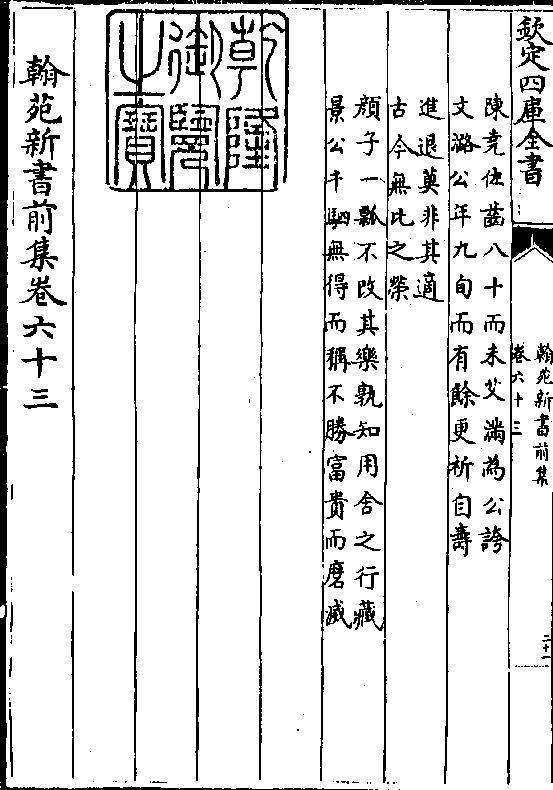 欽定四庫全書
翰苑新書前集
卷六十三
二十一
陳堯佐齒八十而未艾滿為公誇
文潞公年九旬而有餘更祈自壽
進退莫非其適
古今無比之榮
顔子一瓢不改其樂孰知用舍之行藏
景公千駟無得而稱不勝富貴而磨滅
乾隆御覽之寶
翰苑新書前集卷六十三